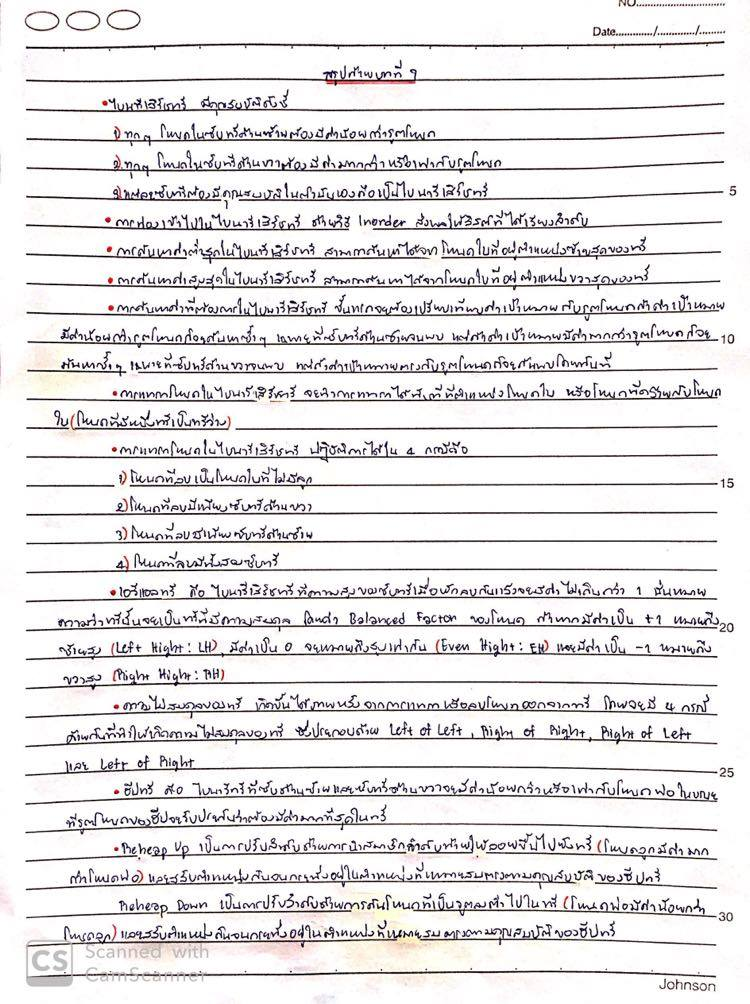 NO.
Date............/............/............
สรุปท้ายบทที่ 9
•ไบนารีเสิร์ชทรี มีคุณสมบัติดังนี้
1) ทุกๆ โหนดในซับทรีด้านซ้ายต้องมีค่าน้อยกว่ารูตโหนด
2) ทุกๆ โหนดในซับทรีด้านขวาต้องมีค่ามากกว่าหรือเท่ากับรูตโหนด
5
3) แต่ละซับทรีต้องมีคุณสมบัติในตัวมันเองคือเป็นไบนารีเสิร์ชทรี
• การท่องเข้าไปในไบนารีเสิร์ชทรี ด้วยวิธี Inorder ส่งผลให้ลิสต์ที่ได้เรียงลำดับ
• การค้นหาค่าต่ำสุดในไบนารีเสิร์ชทรี สามารถค้นหาได้จากโหนดใบที่อยู่ตำแหน่งซ้ายสุดของทรี
• การค้นหาค่าสูงสุดในไบนารีเสิร์ชทรี สามารถค้นหาได้จากโหนดใบที่อยู่ตำแหน่งขวาสุดของทรี
• การค้นหาค่าที่ต้องการในไบนารีเสิร์ชทรี ขั้นแรกจะต้องเปรียบเทียบค่าเป้าหมายกับรูตโหนดถ้าค่าเป้าหมาย
10
มีค่าน้อยกว่ารูตโหนดก็จะค้นหาซ้ำๆ เฉพาะที่ซับทรีด้านซ้ายจนพบ แต่ถ้าค่าเป้าหมายมีค่ามากกว่ารูตโหนดก็จะ
ค้นหาซ้ำๆ เฉพาะที่ซับทรีด้านขวาจนพบ แต่ถ้าค่าเป้าหมายตรงกับรูตโหนดก็จะค้นพบโดยทันที
•การแทรกโหนดในไบนารีเสิร์ชทรี จะทำการแทรกได้ทันทีที่ตำแหน่งโหนดใบ หรือโหนดที่คล้ายกับโหนด
ใบ(โหนดที่มีหนึ่งทรีเป็นทรีว่าง)
•การแทรกโหนดในไบนารีเสิร์ชทรี ปฏิบัติการได้ใน 4 กรณีคือ
15
1) โหนดที่ลบเป็นโหนดใบที่ไม่มีลูก
2) โหนดที่ลบมีเพียงซับทรีด้านขวา
3) โหนดที่ลบมีเพียงซับทรีด้านซ้าย
4) โหนดที่ลบมีทั้งสองซับทรี
•เอวีแอลทรี คือ ไบนารีเสิร์ชทรีที่ความสูงของซับทรีเมื่อหักลบกันแล้วจะมีค่าไม่เกินกว่า 1 นั่นหมาย
20
ความว่าทรีนั้นจะเป็นทรีที่มีความสมดุล โดยค่า Balanced Factor ของโหนด ถ้าหากมีค่าเป็น +1 หมายถึง
ซ้ายสูง (Left Hight : LH), มีค่าเป็น 0 จะหมายถึงสูงเท่ากัน (Even Hight : EH) และมีค่าเป็น -1 หมายถึง
ขวาสูง (Right Hight : RH)
•ความไม่สมดุลของทรี เกิดขึ้นได้ภายหลังจากการแทรกหรือลบโหนดออกจากทรี โดยจะมี 4 กรณี
ด้วยกันที่ทำให้เกิดความไม่สมดุลของทรี ซึ่งประกอบด้วย Left of Left , Right of Right, Right of Left
25
และ Left of Right
• ฮีปทรี คือ ไบนารีทรีที่ซับด้านซ้ายและซับทรีด้านขวาจะมีค่าน้อยกว่าหรือเท่ากับโหนดพ่อในขณะ
ที่รูตโหนดของฮีปจะรับประกันว่าต้องมีค่ามากที่สุดในทรี
•Reheap Up เป็นการปรับลำดับด้วยการนำสมาชิกลำดับท้ายให้ลอยขึ้นไปยังทรี (โหนดลูกมีค่ามาก
กว่าโหนดพ่อ) และสลับตำแหน่งกันจนกระทั่งอยู่ในตำแหน่งที่เหมาะสมตรงตามคุณสมบัติของฮีปทรี
30
Reheap Down เป็นการปรับลำดับด้วยการดันโหนดที่เป็นรูตลงต่ำไปในทรี (โหนดพ่อมีค่าน้อยกว่า
โหนดลูก) และสลับตำแหน่งกันจนกระทั่งอยู่ในตำแหน่งที่เหมาะสมตรงตามคุณสมบัติของฮีปทรี
CS Scanned with
CamScanner
Johnson